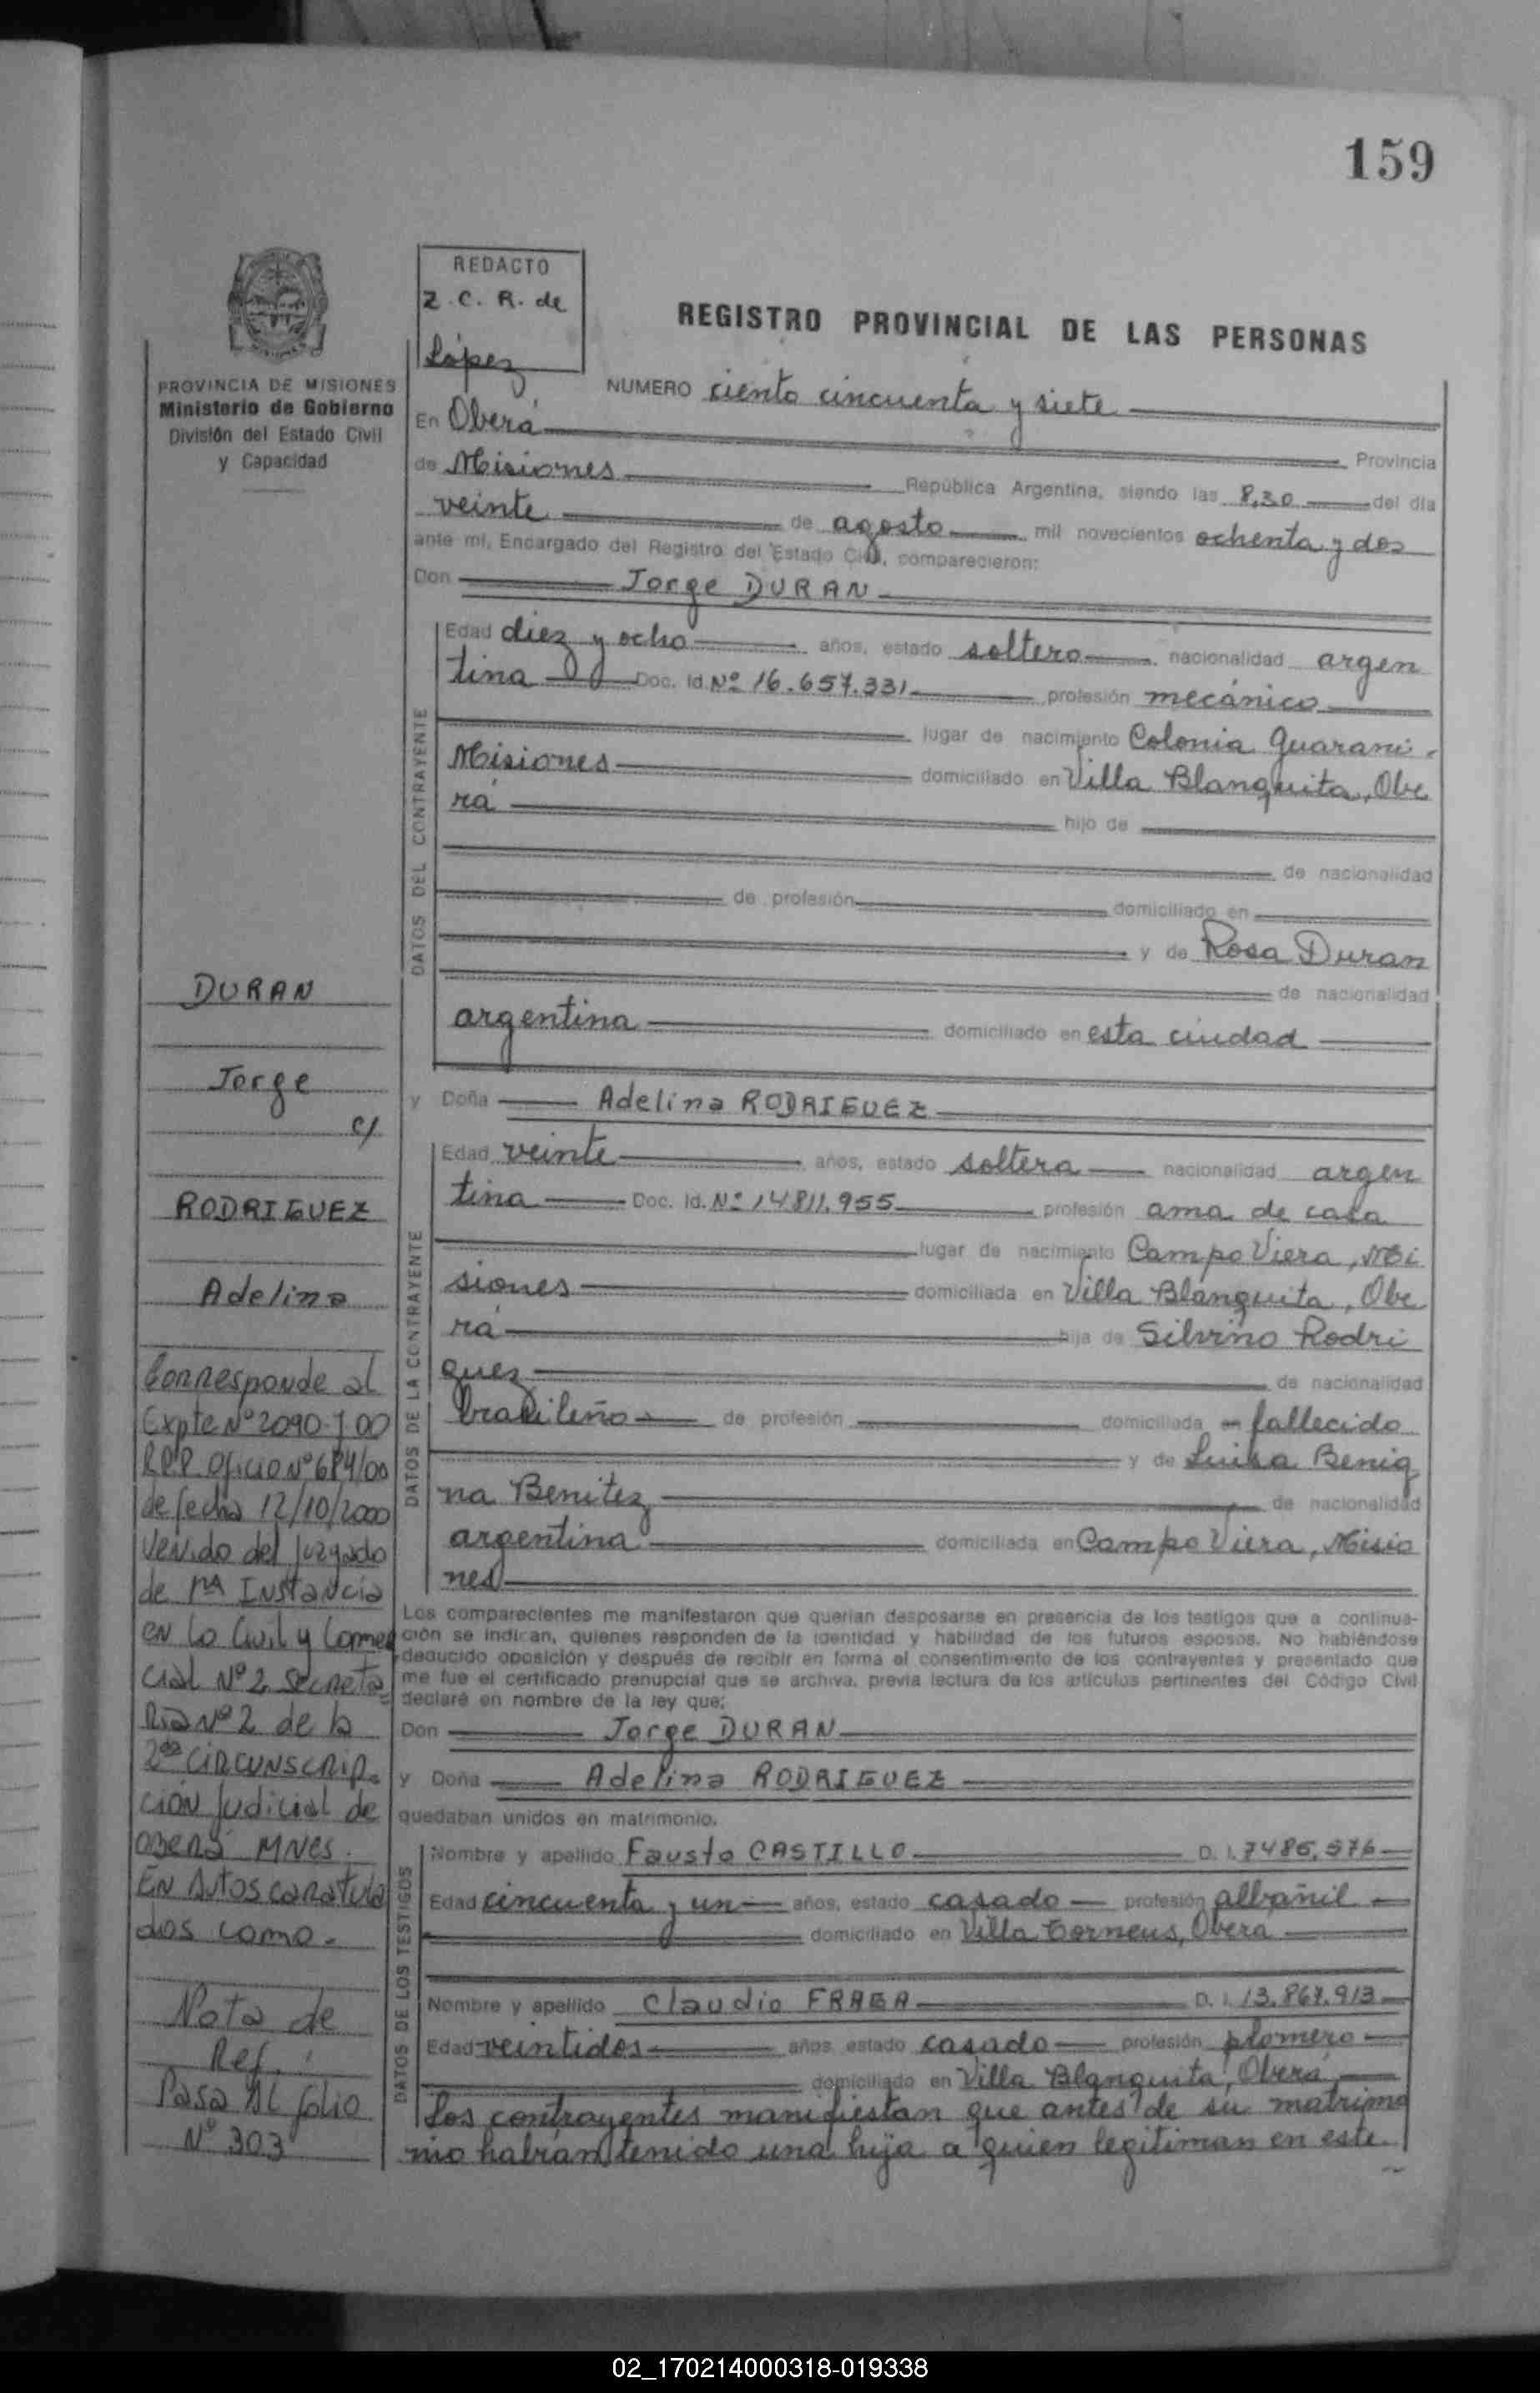 159
REDACTO
Z. C. R. de
López
REGISTRO PROVINCIAL DE LAS PERSONAS
PROVINCIA DE MISIONES
Ministerio de Gobierno
División del Estado Civil
y Capacidad
NUMERO ciento cincuenta y siete
En Oberá Provincia
de Misiones República Argentina, siendo las 8,30 del día
veinte de agosto mil novecientos ochenta y dos
ante mí, Encargado del Registro del Estado Civil, comparecieron:
Don Jorge DURAN
DATOS DEL CONTRAYENTE
Edad diez y ocho años, estado soltero nacionalidad argen
tina Doc. Id. Nº 16.657.331 profesión mecánico
lugar de nacimiento Colonia Guaraní,
Misiones domiciliado en Villa Blanquita, Obe
rá hijo de
de nacionalidad
de profesión domiciliado en
y de Rosa Duran
de nacionalidad
argentina domiciliado en esta ciudad
y Doña Adelina RODRIGUEZ
DATOS DE LA CONTRAYENTE
Edad veinte años, estado soltera nacionalidad argen
tina Doc. Id. Nº 14811.955 profesión ama de casa
lugar de nacimiento Campo Viera, Mi
siones domiciliada en Villa Blanquita, Obe
rá hija de Silvino Rodri
guez de nacionalidad
brasileño de profesión domiciliada en fallecido
y de Luisa Benig
na Benitez de nacionalidad
argentina domiciliada en Campo Viera, Misio
nes
Los comparecientes me manifestaron que querían desposarse en presencia de los testigos que a continua-
ción se indican, quienes responden de la identidad y habilidad de los futuros esposos. No habiéndose
deducido oposición y después de recibir en forma el consentimiento de los contrayentes y presentado que
me fue el certificado prenupcial que se archiva, previa lectura de los artículos pertinentes del Código Civil
declaré en nombre de la ley que:
Don Jorge DURAN
y Doña Adelina RODRIGUEZ
quedaban unidos en matrimonio.
DATOS DE LOS TESTIGOS
Nombre y apellido Fausto CASTILLO D. I. 7485.576
Edad cincuenta y un años, estado casado profesión albañil
domiciliado en Villa Torneus, Oberá
Nombre y apellido Claudio FRAGA D. I. 13.867.913
Edad veintidos años, estado casado profesión plomero
domiciliado en Villa Blanquita, Oberá
Los contrayentes manifiestan que antes de su matrimo
nio habían tenido una hija a quien legitiman en este
DURAN
Jorge
c/
RODRIGUEZ
Adelina
Corresponde al
Expte Nº 2090-J 00
R.P.P. Oficio Nº 684/00
de fecha 12/10/2000
Venido del Juzgado
de 1ra Instancia
en lo Civil y Comer
cial Nº 2 Secreta=
Ria Nº 2 de la
2da CIRCUNSCRIP-
CIÓN Judicial de
OBERÁ MNES.
EN AUTOS caratula
dos como-
Nota de
Ref.:
Pasa AL folio
Nº 303
02_170214000318-019338